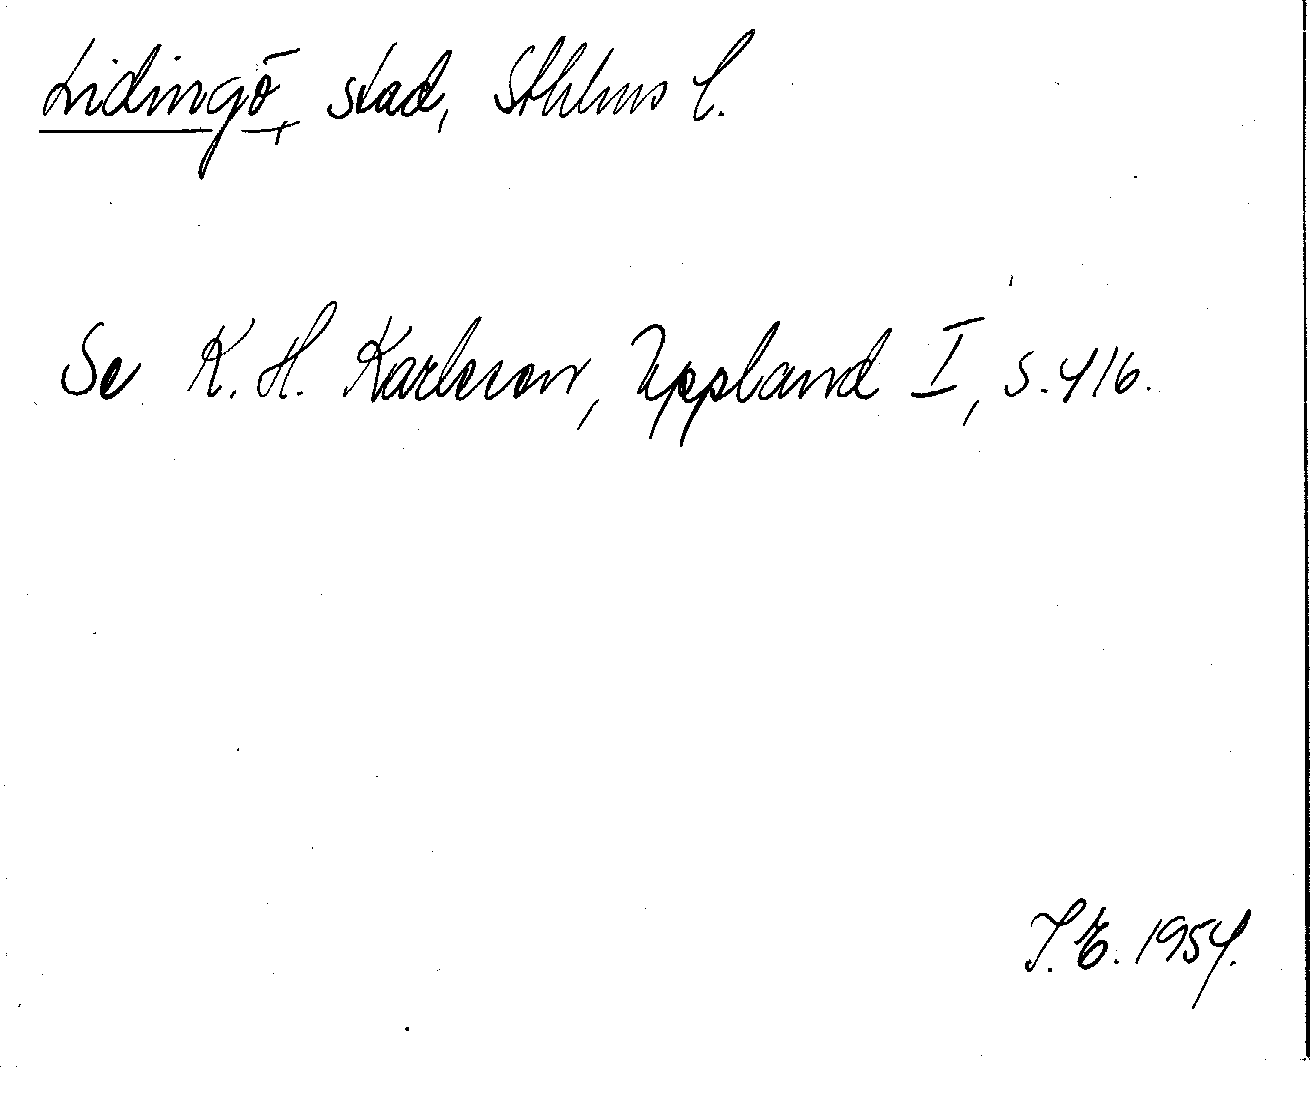 Lidingö, stad, Sthlms l.
Se K. H. Karlsson, Uppland I, s. 416.
I. E. 1954.